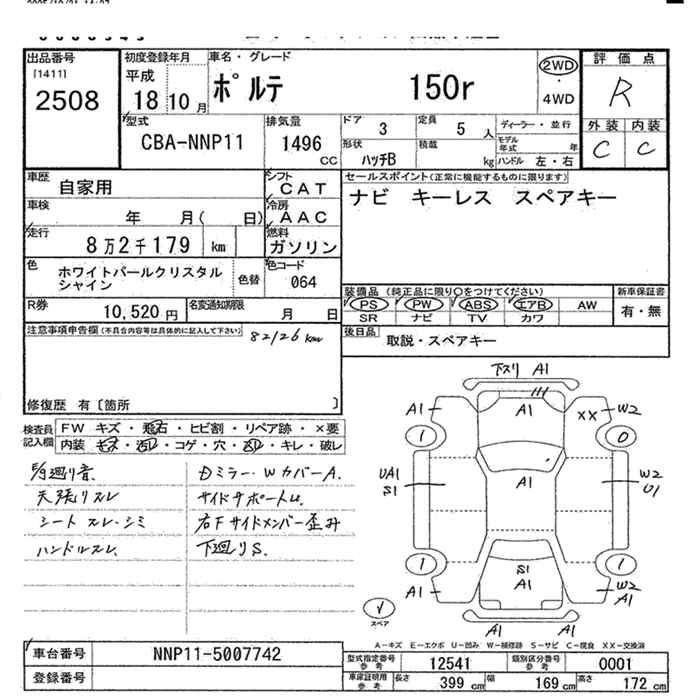 出品番号
[1411]
2508
初度登録年月
平成
18 10 月
車名・グレード
ポルテ 150r
2WD
・
4WD
評 価 点
R
外装 内装
C C
型式
CBA-NNP11
排気量
1496
CC
ドア 3
定員 5 人
ディーラー・並行
モデル年式 年
形状 ハッチB
積載 kg
ハンドル 左・右
車歴
自家用
シフト
CAT
セールスポイント(正常に機能するものに限ります)
ナビ キーレス スペアキー
車検
年 月( 日)
冷房
AAC
走行
8万2千179 km
燃料
ガソリン
色
ホワイトパールクリスタル
シャイン
色替
色コード
064
装備品(純正品に限り○をつけてください)
PS PW ABS エアB AW
SR ナビ TV カワ
新車保証書
有・無
R券
10,520 円
名変通知期限
月 日
後日品
取説・スペアキー
注意事項申告欄(不具合内容等は具体的に記入して下さい)
82126 km
修復歴 有〔箇所 〕
検査員
記入欄
FW キズ・飛石・ヒビ割・リペア跡・×要
内装・キズ・汚レ・コゲ・穴・凹レ・キレ・破レ
天張リスレ
シート スレ・シミ
ハンドルスレ
Dミラー・WカバーA.
サイドサポートU.
右Fサイドメンバー歪み
下廻りS.
下スリ A1
A1 A1 XX W2
1 0
UA1
S1
A1
W2
U1
1 1
S1
A1
A1
W2
A1
A1 A1
スペア
A−キズ E−エクボ U−凹み W−補修跡 S−サビ C−腐食 XX−交換済
車台番号
NNP11-5007742
登録番号
型式指定番号
参考
12541
類別区分番号
参考
0001
車庫証明用
参考
長さ 399 cm
幅 169 cm
高さ 172 cm